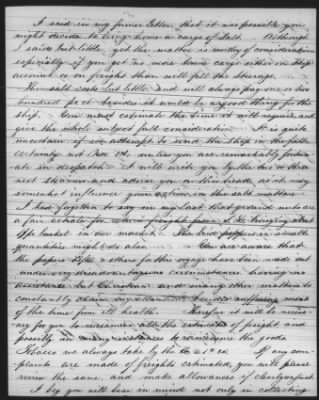 I said in my former letter that it was possible you
might decide to bring home a cargo of Salt. Although
I said but little, yet the matter is worthy of consideration
especially if you get no more home cargo either on Ship
account or on freight than will fill the
The salt costs but little and will always pay one or two
hundred pr ct. besides it would be a good thing for the
ship. You must estimate the time it will require and
give the whole subject full consideration. It is quite
uncertain if we attempt to send the ship in the fall
certainly not Nov 1st, unless you are remarkably fortun-
ate in despatch. I will write you by the this or the
next steamer and advise you on this head, as it may
somewhat influence your action in the salt matter.
I had forgotten to say in my last that ground nuts are
a fair article for return freight from bringing about
in our market. Also bird peppers in small
quantities might do also. You are aware that
the papers & others for the voyage have been made out
under very disadvantageous circumstances having no
assistance but and many other matters to
constantly claim my attention besides suffering most
of the time from ill health. Therefore it will be neces-
ary for you to reexamine all the estimates of freight, and
possibly in many instances to remeasure the goods.
Tobacco we always take by the If any com-
plaints are made of freights estimated, you will please
review the same and make allowances if clearly just.
I beg you will bear in mind not only in collecting